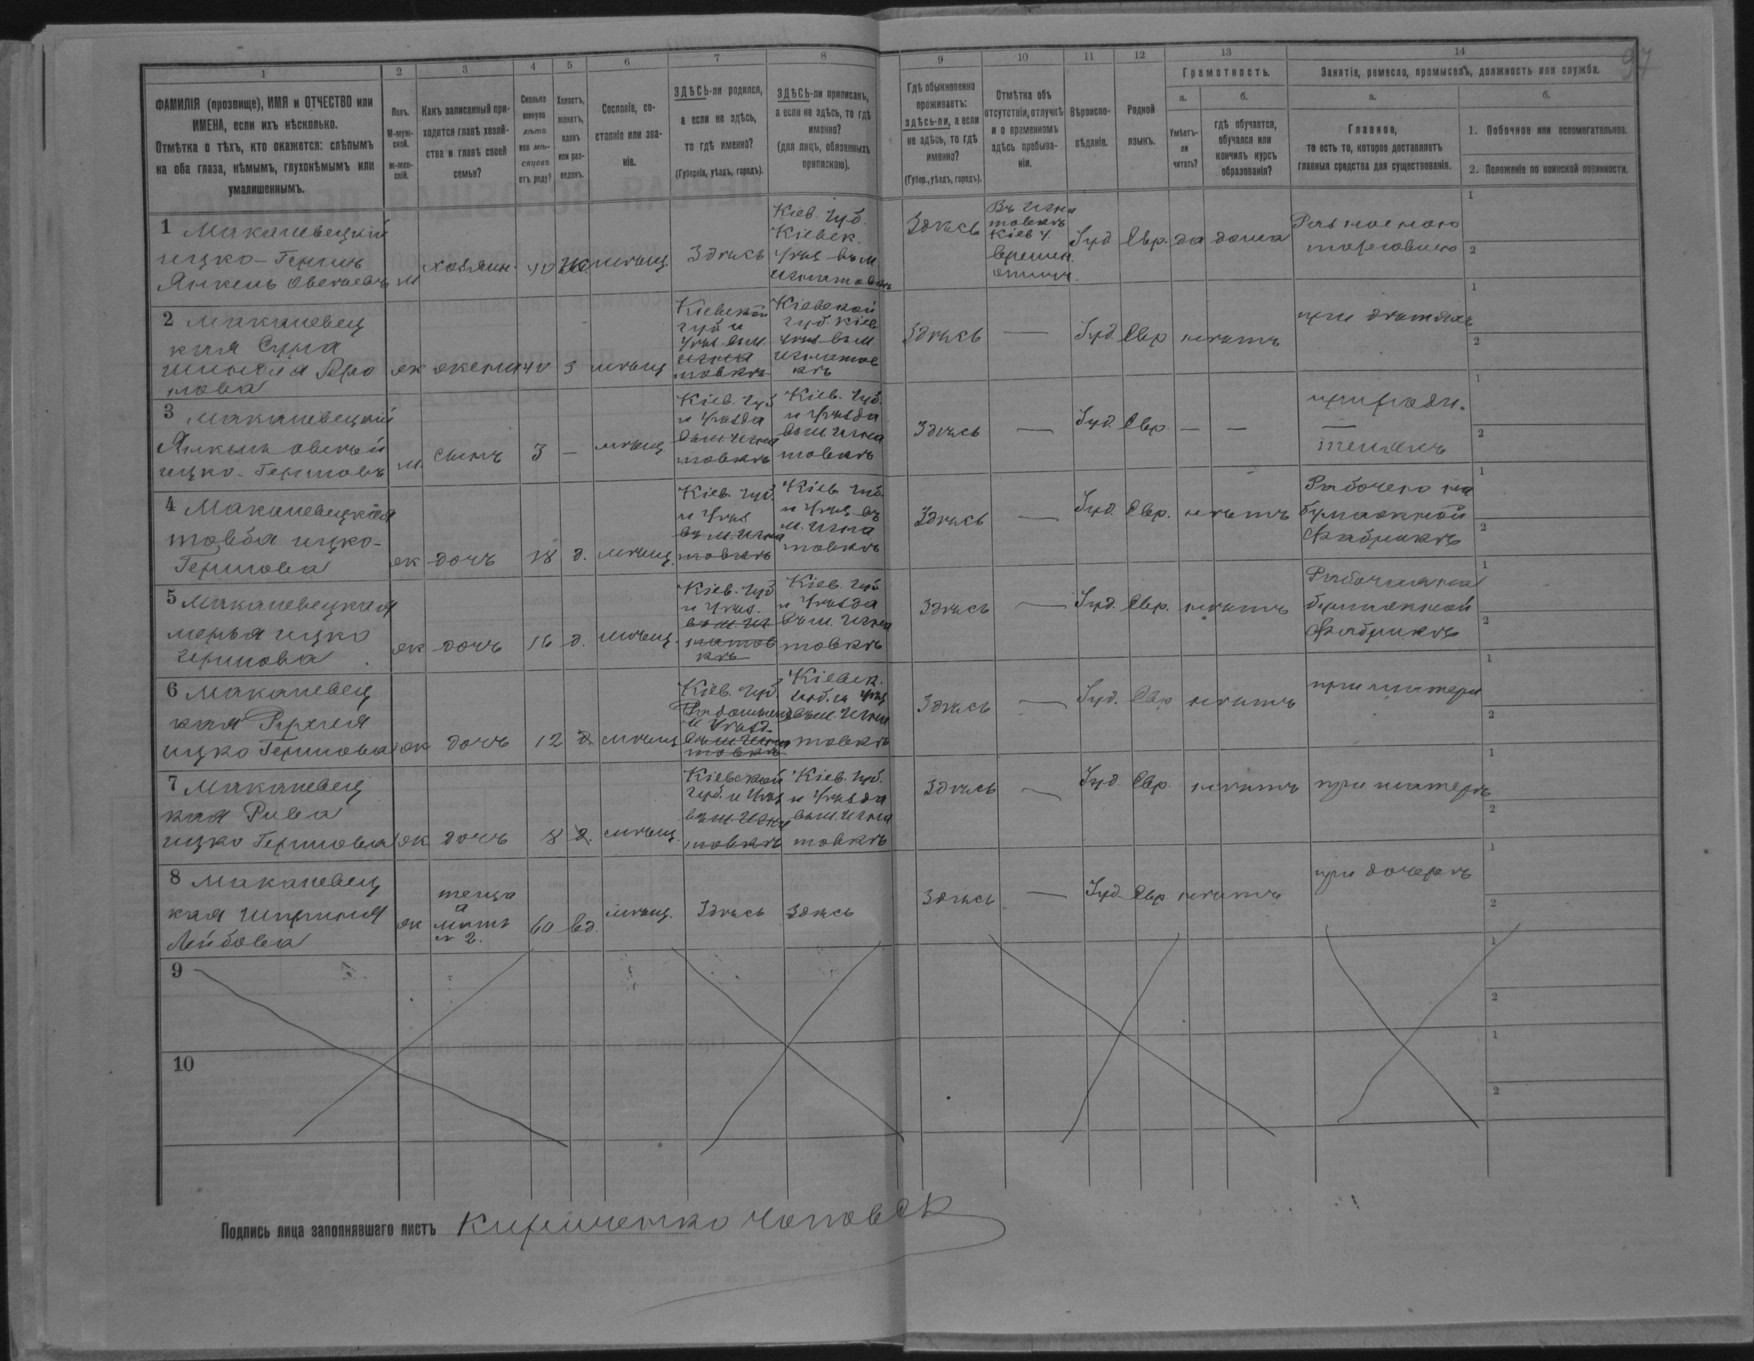 97
1 2 3 4 5 6 7 8 9 10 11 12 13 14
ФАМИЛІЯ (прозвище), ИМЯ и ОТЧЕСТВО или
ИМЕНА, если ихъ нѣсколько.
Отмѣтка о тѣхъ, кто окажется: слѣпымъ
на оба глаза, нѣмымъ, глухонѣмымъ или
умалишеннымъ.
Полъ.
М-муж-
ской.
Ж-жен-
скій.
Какъ записанный при-
ходится главѣ хозяй-
ства и главѣ своей
семьи?
Сколько
минуло
лѣтъ
или мѣ-
сяцевъ
отъ роду?
Холостъ,
женатъ,
вдовъ
или раз-
веденъ.
Сословіе, со-
стояніе или зва-
ніе.
ЗДѢСЬ-ли родился,
а если не здѣсь,
то гдѣ именно?
(Губернія, уѣздъ, городъ).
ЗДѢСЬ-ли приписанъ,
а если не здѣсь, то гдѣ
именно?
(для лицъ, обязанныхъ
припискою).
Гдѣ обыкновенно
проживаетъ:
здѣсь-ли, а если
не здѣсь, то гдѣ
именно?
(Губер., уѣздъ, городъ).
Отмѣтка объ
отсутствіи, отлучкѣ
и о временномъ
здѣсь пребыва-
ніи.
Вѣроиспо-
вѣданіе.
Родной
языкъ.
Грамотность.
а.
Умѣетъ-
ли
читать?
б.
гдѣ обучается,
обучался или
кончилъ курсъ
образованія?
Занятіе, ремесло, промыселъ, должность или служба.
а.
Главное,
то есть то, которое доставляетъ
главныя средства для существованія.
б.
1. Побочное или вспомогательное.
2. Положеніе по воинской повинности.
1 Макалевецкій
ицко-Гершъ
Янкель Овсеевъ
м
хозяин.
40
мѣщ
Здѣсь
Кіев. губ.
Кіевск.
уѣз. въ м
Игнатовкѣ
Здѣсь
Въ Игна
товкѣ
Кіев у
времен.
Іуд
Евр.
да
дома
торговлю
2 Макалевец
кая Сура
ова
ж
жена
40
з
мѣщ
Кіевской
губ и
уѣз. въ м.
Игна
товкѣ
Кіевской
губ. Кіев
уѣз. въ м
Игнатов
кѣ
Здѣсь
—
Іуд
Евр
нѣтъ
при дѣтяхъ
3 Макалевецкій
ицко-Гершовъ
м.
сынъ
3
—
мѣщ
Кіев. губ
и уѣзда
въ м Игна
товкѣ
Кіев. губ.
и уѣзда
въ м Игна
товкѣ
Здѣсь
—
Іуд
Евр.
—
—
при роди-
теляхъ
4 Макалевецкая
товба ицко-
Гершова
ж
дочь
18
д.
мѣщ.
Кіев. губ.
и уѣз
въ м. Игна
товкѣ
Кіев губ.
и уѣз. въ
м. Игна
товкѣ
Здѣсь
—
Іуд.
Евр.
нѣтъ
Рабочею на
бумажной
Фабрикѣ
5 Макалевецкая
ицко
Гершова
ж
дочь
16
д.
мѣщ.
Кіев. губ
и уѣз.
въ м Иг
натов
кѣ
Кіев. губ
и уѣзда
въ м. Игна
товкѣ
Здѣсь
—
Іуд.
Евр.
нѣтъ
Рабочая на
бумажной
Фабрикѣ
6 Макалевец
кая Рухля
ицко Гершова
ж
дочь
12
д
мѣщ
Кіев. губ.
Радомысл
уѣзд.
въ м Игна
товкѣ
Кіевск.
губ. и уѣз
въ м Игна
товкѣ
Здѣсь
—
Іуд.
Евр
нѣтъ
при матери
7 Макалевец
кая Рива
ицко Гершова
ж
дочь
8
д
мѣщ.
Кіевской
губ. и уѣз
въ м Игна
товкѣ
Кіев. губ.
и уѣзда
въ м Игна
товкѣ
Здѣсь
—
Іуд
Евр.
нѣтъ
при матерѣ
8 Макалевец
кая
Лейбова
ж
теща
а
мать
№ 2.
60
вд.
мѣщ.
Здѣсь
Здѣсь
Здѣсь
—
Іуд
Евр
нѣтъ
при дочерѣ
9
10
Подпись лица заполнявшаго листъ